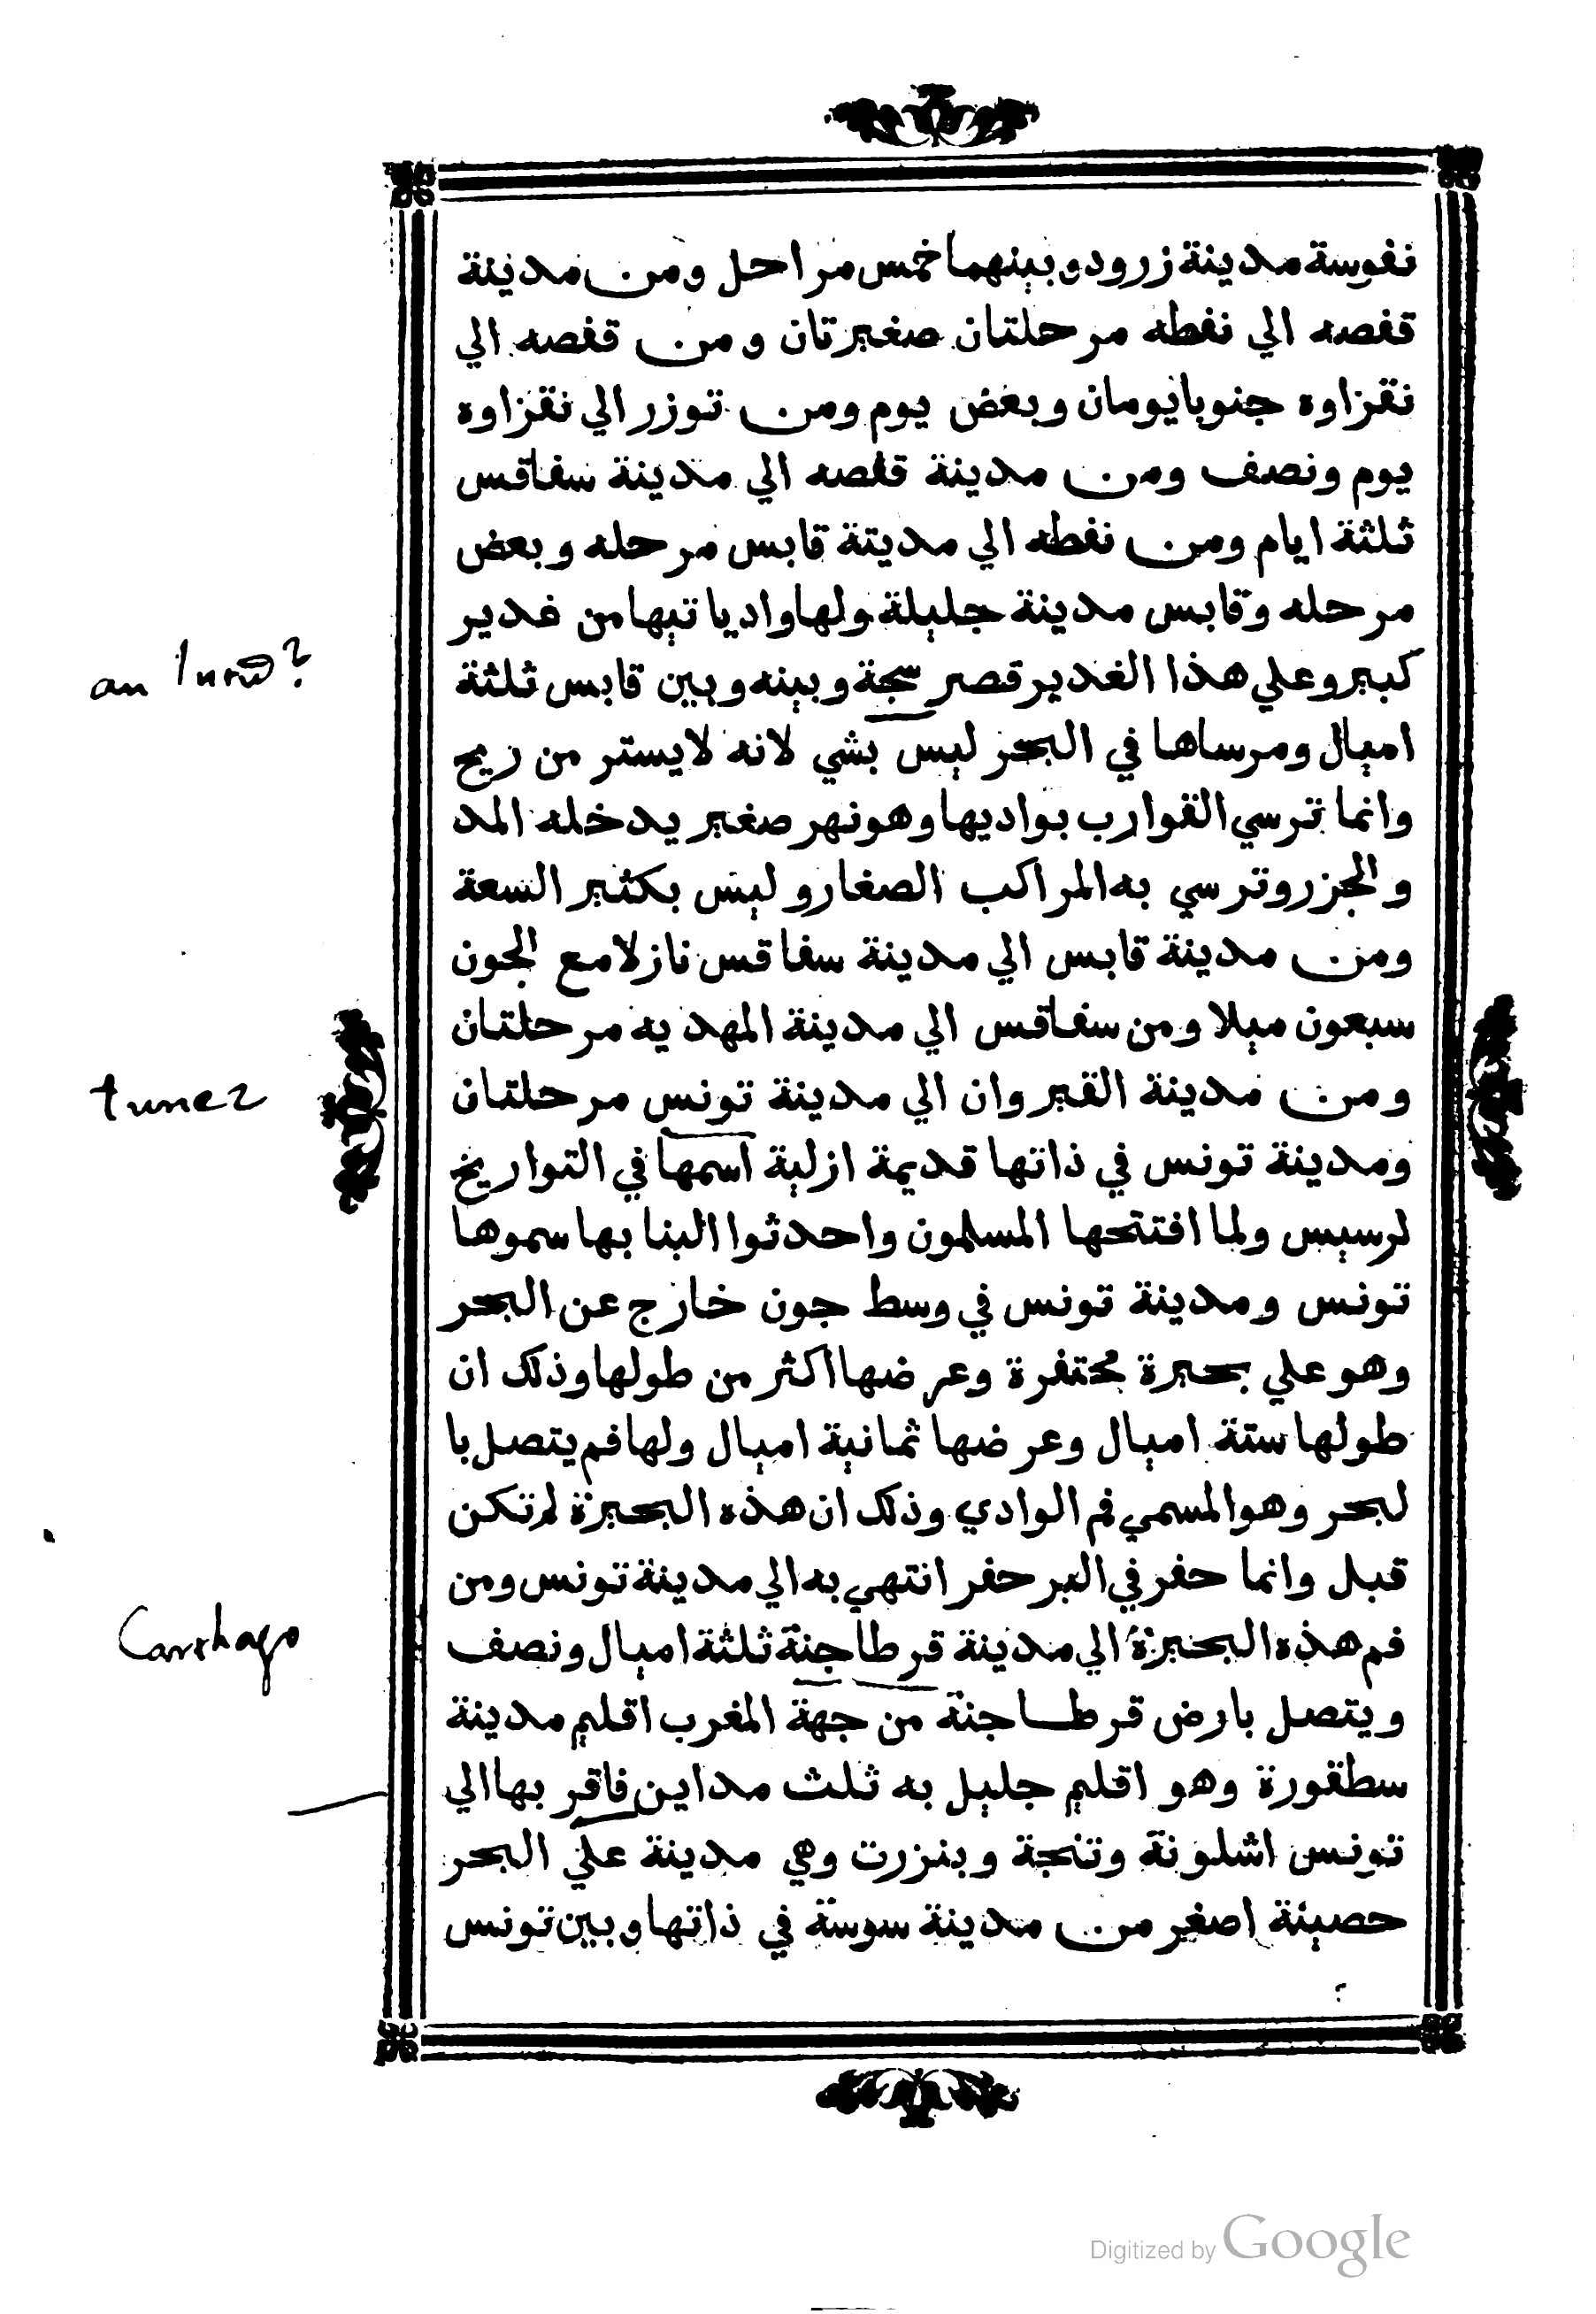 نفوسة مدينة زرود وبينهما خمس مراحل ومن مدينة
قفصه الي نفطه مرحلتان صغيرتان ومن قفصه الي
نقزاوه جنوبا يومان وبعض يوم ومن توزر الي نقزاوه
يوم ونصف ومن مدينة قفصه الي مدينة سفاقس
ثلثة ايام ومن نفطه الي مديتة قابس مرحله وبعض
مرحله وقابس مدينة جليلة ولها واد ياتيها من غدير
كبير وعلي هذا الغدير قصر سجة وبينه وبين قابس ثلثة
اميال ومرساها في البحر ليس بشي لانه لا يستر من ريح
وانما ترسي القوارب بواديها وهو نهر صغير يدخله المد
والجزر وترسي به المراكب الصغار وليس بكثير السعة
ومن مدينة قابس الي مدينة سفاقس نازلا مع الجون
سبعون ميلا ومن سفاقس الي مدينة المهديه مرحلتان
ومن مدينة القيروان الي مدينة تونس مرحلتان
ومدينة تونس في ذاتها قديمة ازلية اسمها في التواريخ
لرسيس ولما افتتحها المسلمون واحدثوا البنا بها سموها
تونس ومدينة تونس في وسط جون خارج عن البحر
وهو علي بحيرة محتفرة وعرضها اكثر من طولها وذلك ان
طولها ستة اميال وعرضها ثمانية اميال ولها فم يتصل با
لبحر وهو المسمي فم الوادي وذلك ان هذه البحيرة لم تكن
قبل وانما حفر في البر حفر انتهي به الي مدينة تونس ومن
فم هذه البحيرة الي مدينة قرطاجنة ثلثة اميال ونصف
ويتصل بارض قرطاجنة من جهة المغرب اقليم مدينة
سطقورة وهو اقليم جليل به ثلث مداين فاقر بها الي
تونس اشلونة وتنجة وبنزرت وهي مدينة علي البحر
حصينة اصغر من مدينة سوسة في ذاتها وبين تونس
an
tunez
Carthago
Digitized by Google